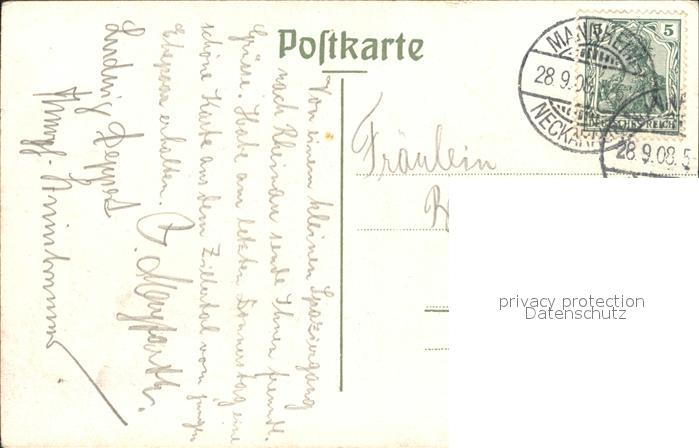 Postkarte
5
MANNHEIM
28.9.08
NECKAR
DEUTSCHES REICH
28.9.08.5
Von einem kleinen Spaziergang
nach Rheinau sende Ihnen freundl.
Grüsse. Habe am letzten Donnerstag eine
schöne Karte aus dem Zillertal vom jungen
Ehepaar erhalten.
Ludwig
Fräulein
privacy protection
Datenschutz